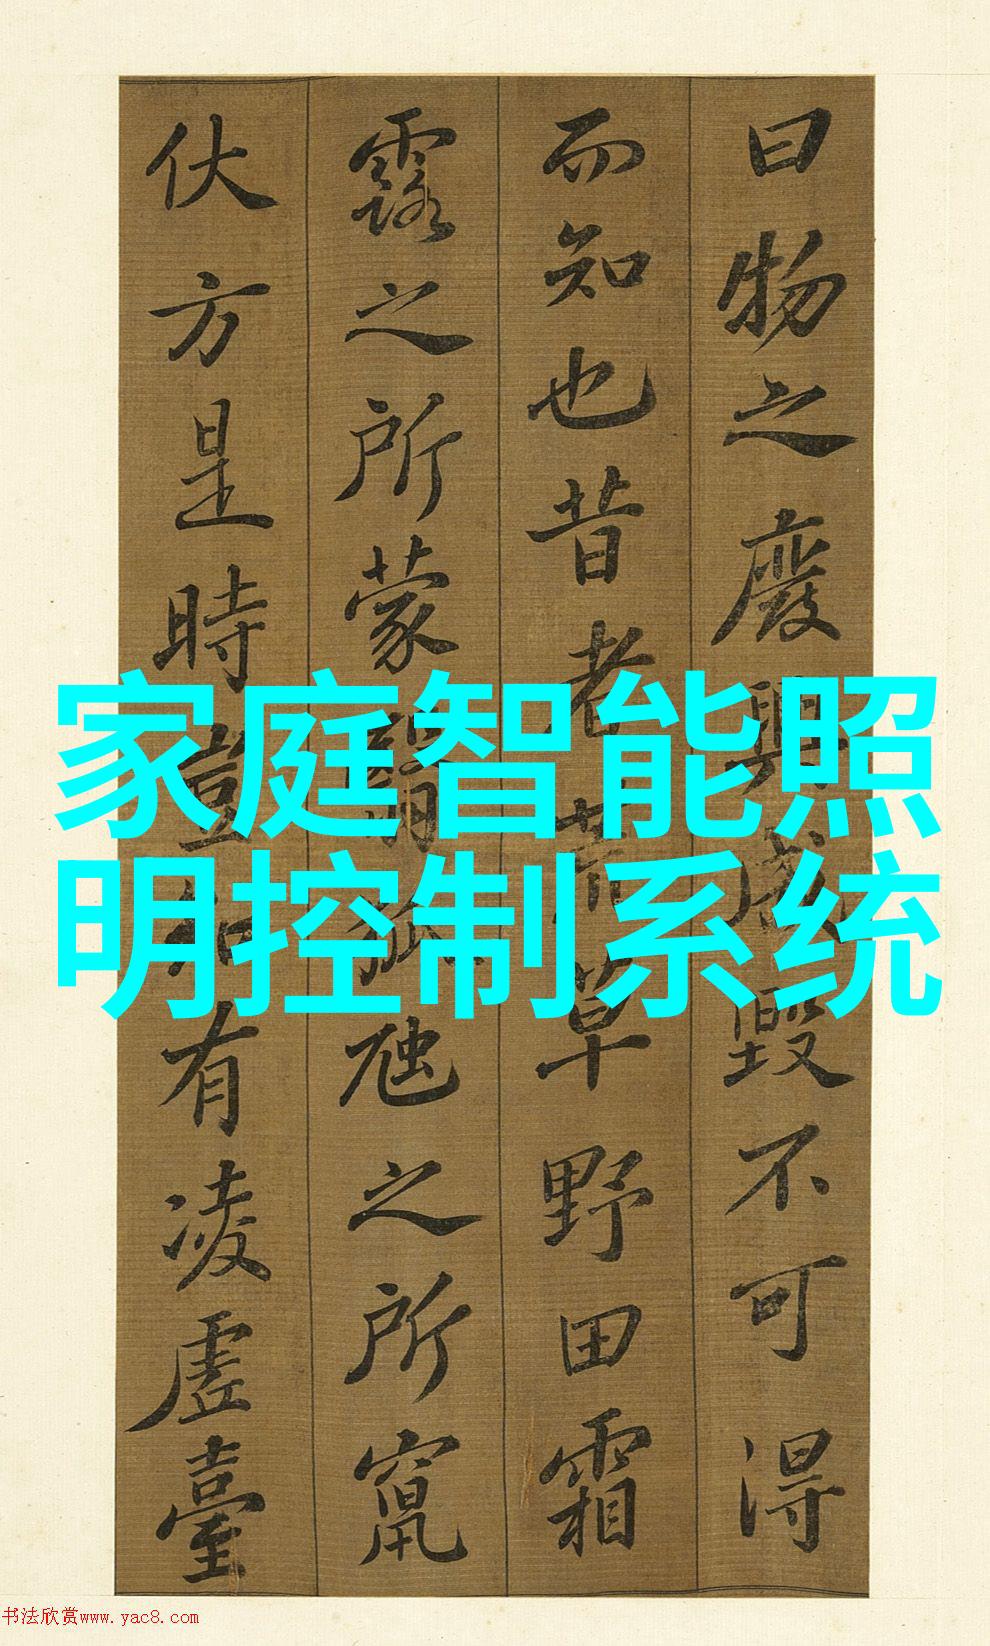 曰物之廢興成毀不可得
而知也昔者荒草野田霜
露之所蒙翳狐虺之所竄
伏方是時豈知有凌虛臺
家庭智能照
明控制系统
书法欣赏www.yac8.com